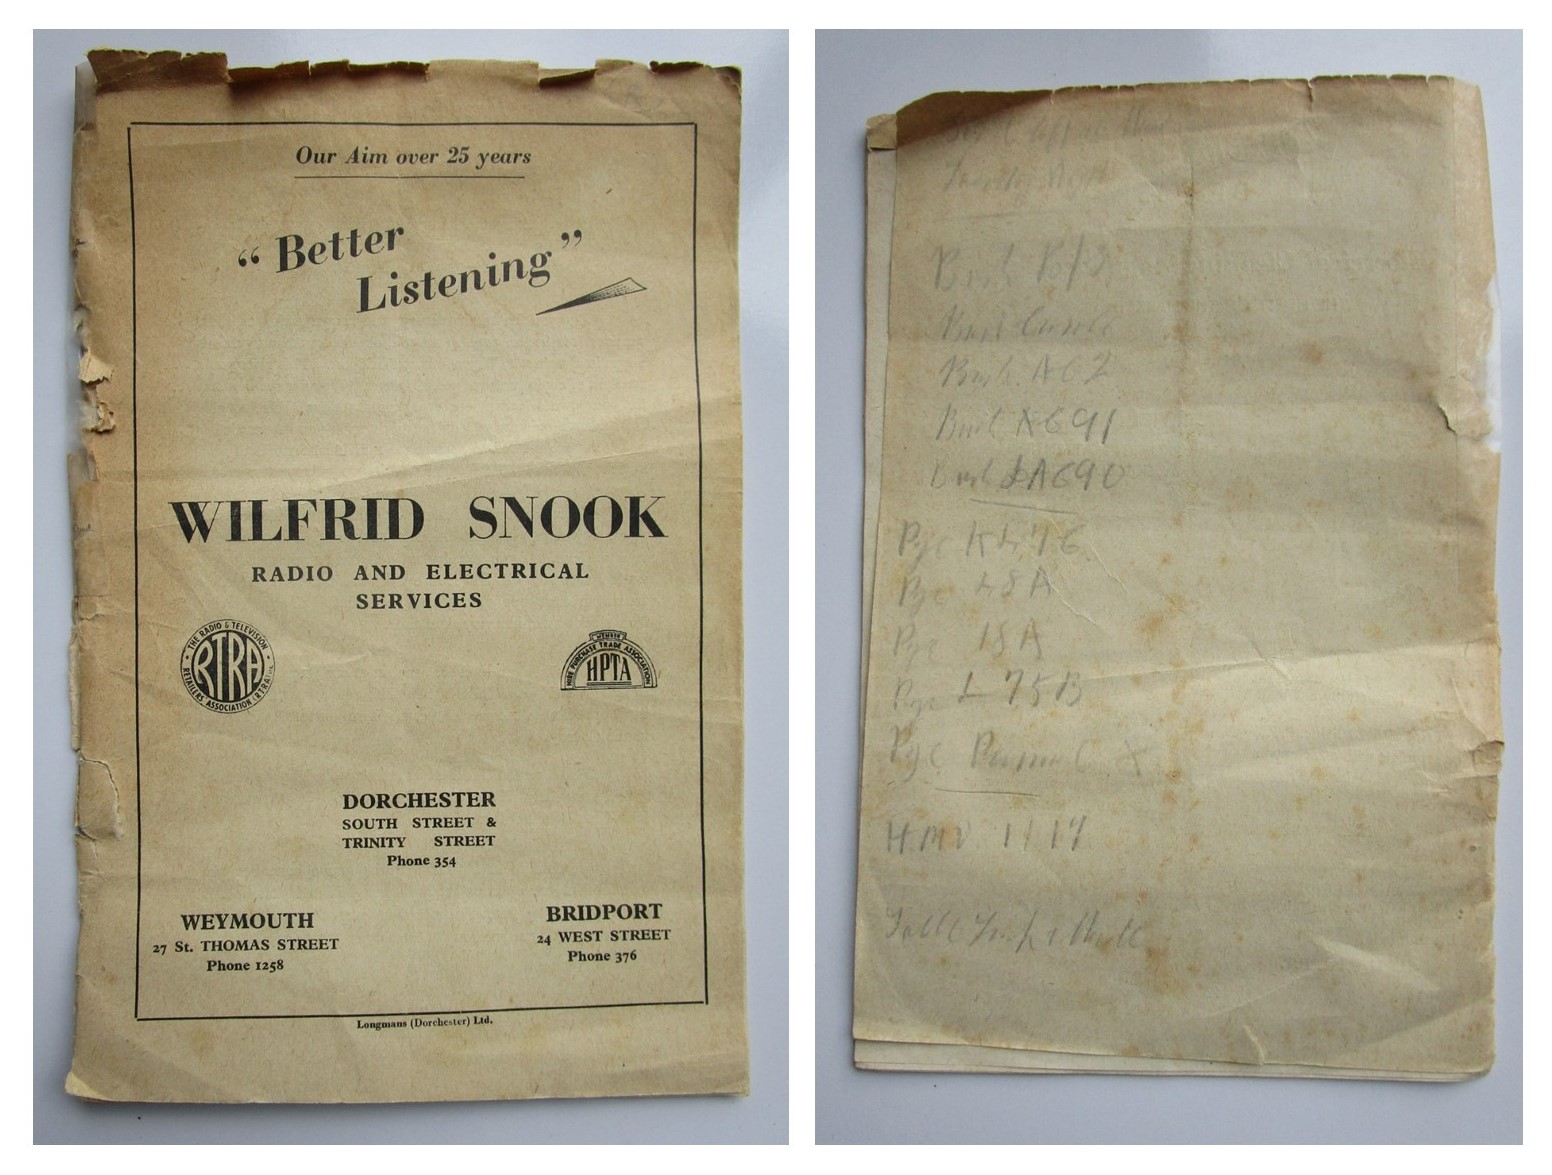 Our Aim over 25 years
“Better
Listening”
WILFRID SNOOK
RADIO AND ELECTRICAL
SERVICES
THE RADIO & TELEVISION
RETAILERS ASSOCIATION (R.T.R.A.)
RTRA
MEMBER
HIRE PURCHASE TRADE ASSOCIATION
HPTA
DORCHESTER
SOUTH STREET &
TRINITY STREET
Phone 354
WEYMOUTH
27 St. THOMAS STREET
Phone 1258
BRIDPORT
24 WEST STREET
Phone 376
Longmans (Dorchester) Ltd.
Bush
Bush
Bush AC2
Bush
Bush
Pye
Pye L8A
Pye 18A
Pye L75B
Pye
HMV 1117